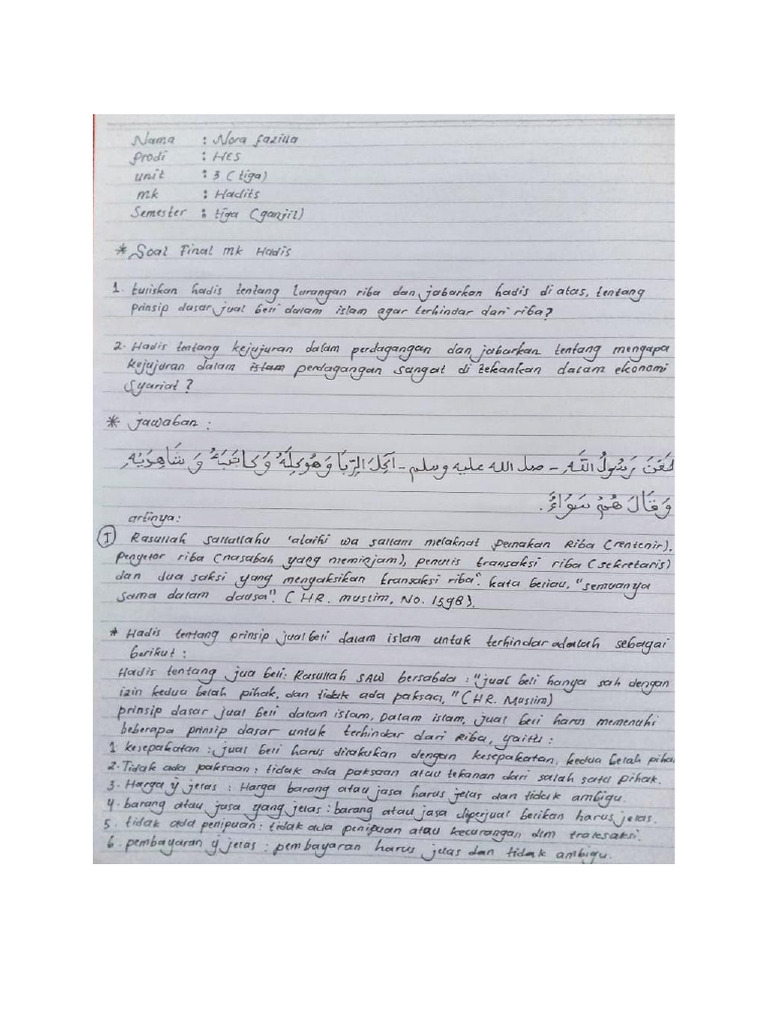 Nama : Nora fazilla
prodi : HES
unit : 3 (tiga)
mk : Hadits
Semester : tiga (ganjil)
* Soal Final mk Hadis
1. tuliskan hadis tentang larangan riba dan jabarkan hadis di atas, tentang
prinsip dasar jual beli dalam islam agar terhindar dari riba?
2. Hadis tentang kejujuran dalam perdagangan dan jabarkan tentang mengapa
kejujuran dalam islam perdagangan sangat di tekankan dalam ekonomi
syariat?
* jawaban :
لَعَنَ رَسُولُ اللَّهِ - صلى الله عليه وسلم - آكِلَ الرِّبَا وَمُوكِلَهُ وَكَاتِبَهُ وَشَاهِدَيْهِ
وَقَالَ هُمْ سَوَاءٌ.
artinya:
(I) Rasullah sallallahu 'alaihi wa sallam melaknat pemakan Riba (rentenir),
pengetor riba (nasabah yang meminjam), penulis transaksi riba (sekretaris)
dan dua saksi yang mengaksikan transaksi riba". kata beliau, "semuanya
sama dalam dausa". (HR. muslim, NO. 1598).
* Hadis tentang prinsip jual beli dalam islam untuk terhindar adalah sebagai
berikut :
Hadis tentang jua beli: Rasullah SAW bersabda : "jual beli hanya sah dengan
izin kedua belah pihak, dan tidak ada paksaci," (HR. Muslim)
prinsip dasar jual beli dalam islam, Dalam islam, jual beli harus memenuhi
beberapa prinsip dasar untuk terhindar dari Riba, yaitu:
1 kesepakatan : jual beli harus dilakukan dengan kesepakatan, kedua belah pihak
2. Tidak ada paksaan : tidak ada paksaan atau tekanan dari salah satu pihak.
3. Harga y jelas : Harga barang atau jasa harus jelas dan tidak ambigu.
4. barang atau jasa yang jelas : barang atau jasa diperjual berikan harus jelas.
5. tidak ada penipuan : tidak ada penipuan atau kecurangan dlm traksaksi.
6. pembayaran y jelas : pembayaran harus jelas dan tidak ambigu.